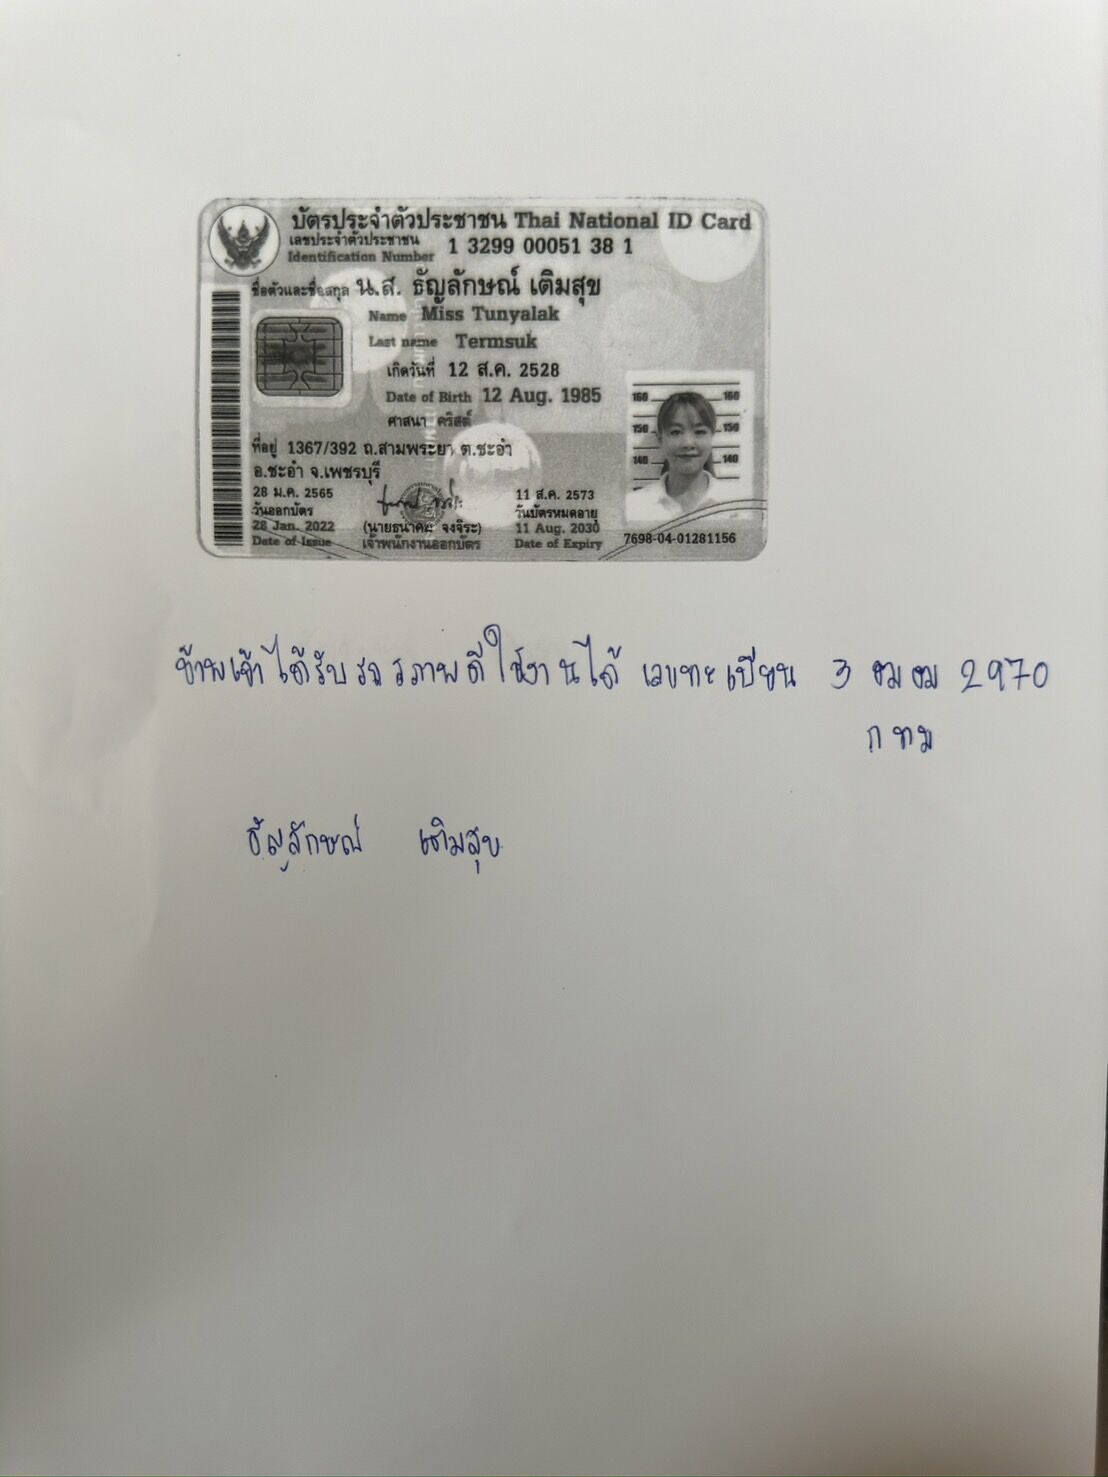 บัตรประจำตัวประชาชน Thai National ID Card
เลขประจำตัวประชาชน
Identification Number
1 3299 00051 38 1
ชื่อตัวและชื่อสกุล น.ส. ธัญลักษณ์ เติมสุข
Name Miss Tunyalak
Last name Termsuk
เกิดวันที่ 12 ส.ค. 2528
Date of Birth 12 Aug. 1985
ศาสนา คริสต์
ที่อยู่ 1367/392 ถ.สามพระยา ต.ชะอำ
อ.ชะอำ จ.เพชรบุรี
28 ม.ค. 2565
วันออกบัตร
28 Jan. 2022
Date of Issue
(นายธนาคม จงจิระ)
เจ้าพนักงานออกบัตร
11 ส.ค. 2573
วันบัตรหมดอายุ
11 Aug. 2030
Date of Expiry
160 160
150 150
140 140
7698-04-01281156
ข้าพเจ้าได้รับรถสภาพดีใช้งานได้ เลขทะเบียน 3 ฒฒ 2970
กทม
ธัญลักษณ์ เติมสุข